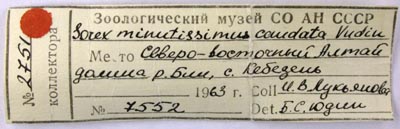 Зоологический музей СО АН СССР
Sorex minutissimus caudata Yudin
Место Северо-восточный Алтай
долина р. Бии, с. Лебедень
1963 г. Coll И.В. Лукьянова
№ 7552 Det. Б.С. Юдин
№ 2751
коллектора